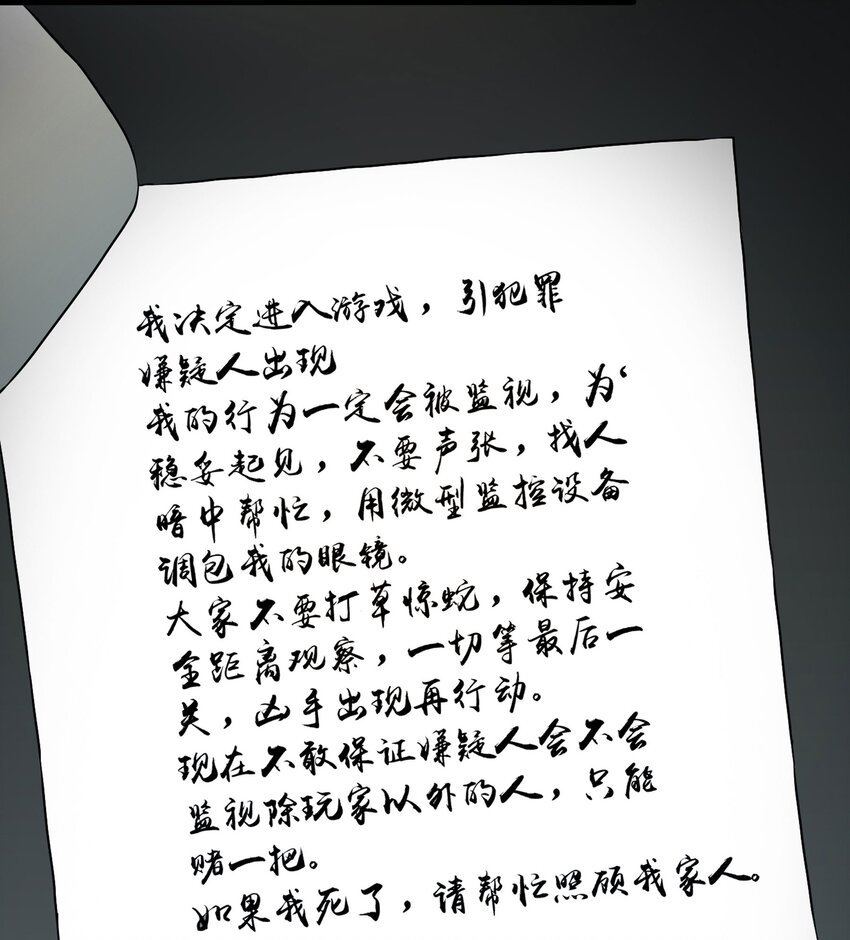 我决定进入游戏，引犯罪
嫌疑人出现
我的行为一定会被监视，为
稳妥起见，不要声张，找人
暗中帮忙，用微型监控设备
调包我的眼镜。
大家不要打草惊蛇，保持安
全距离观察，一切等最后一
关，凶手出现再行动。
现在不敢保证嫌疑人会不会
监视除玩家以外的人，只能
赌一把。
如果我死了，请帮忙照顾我家人。